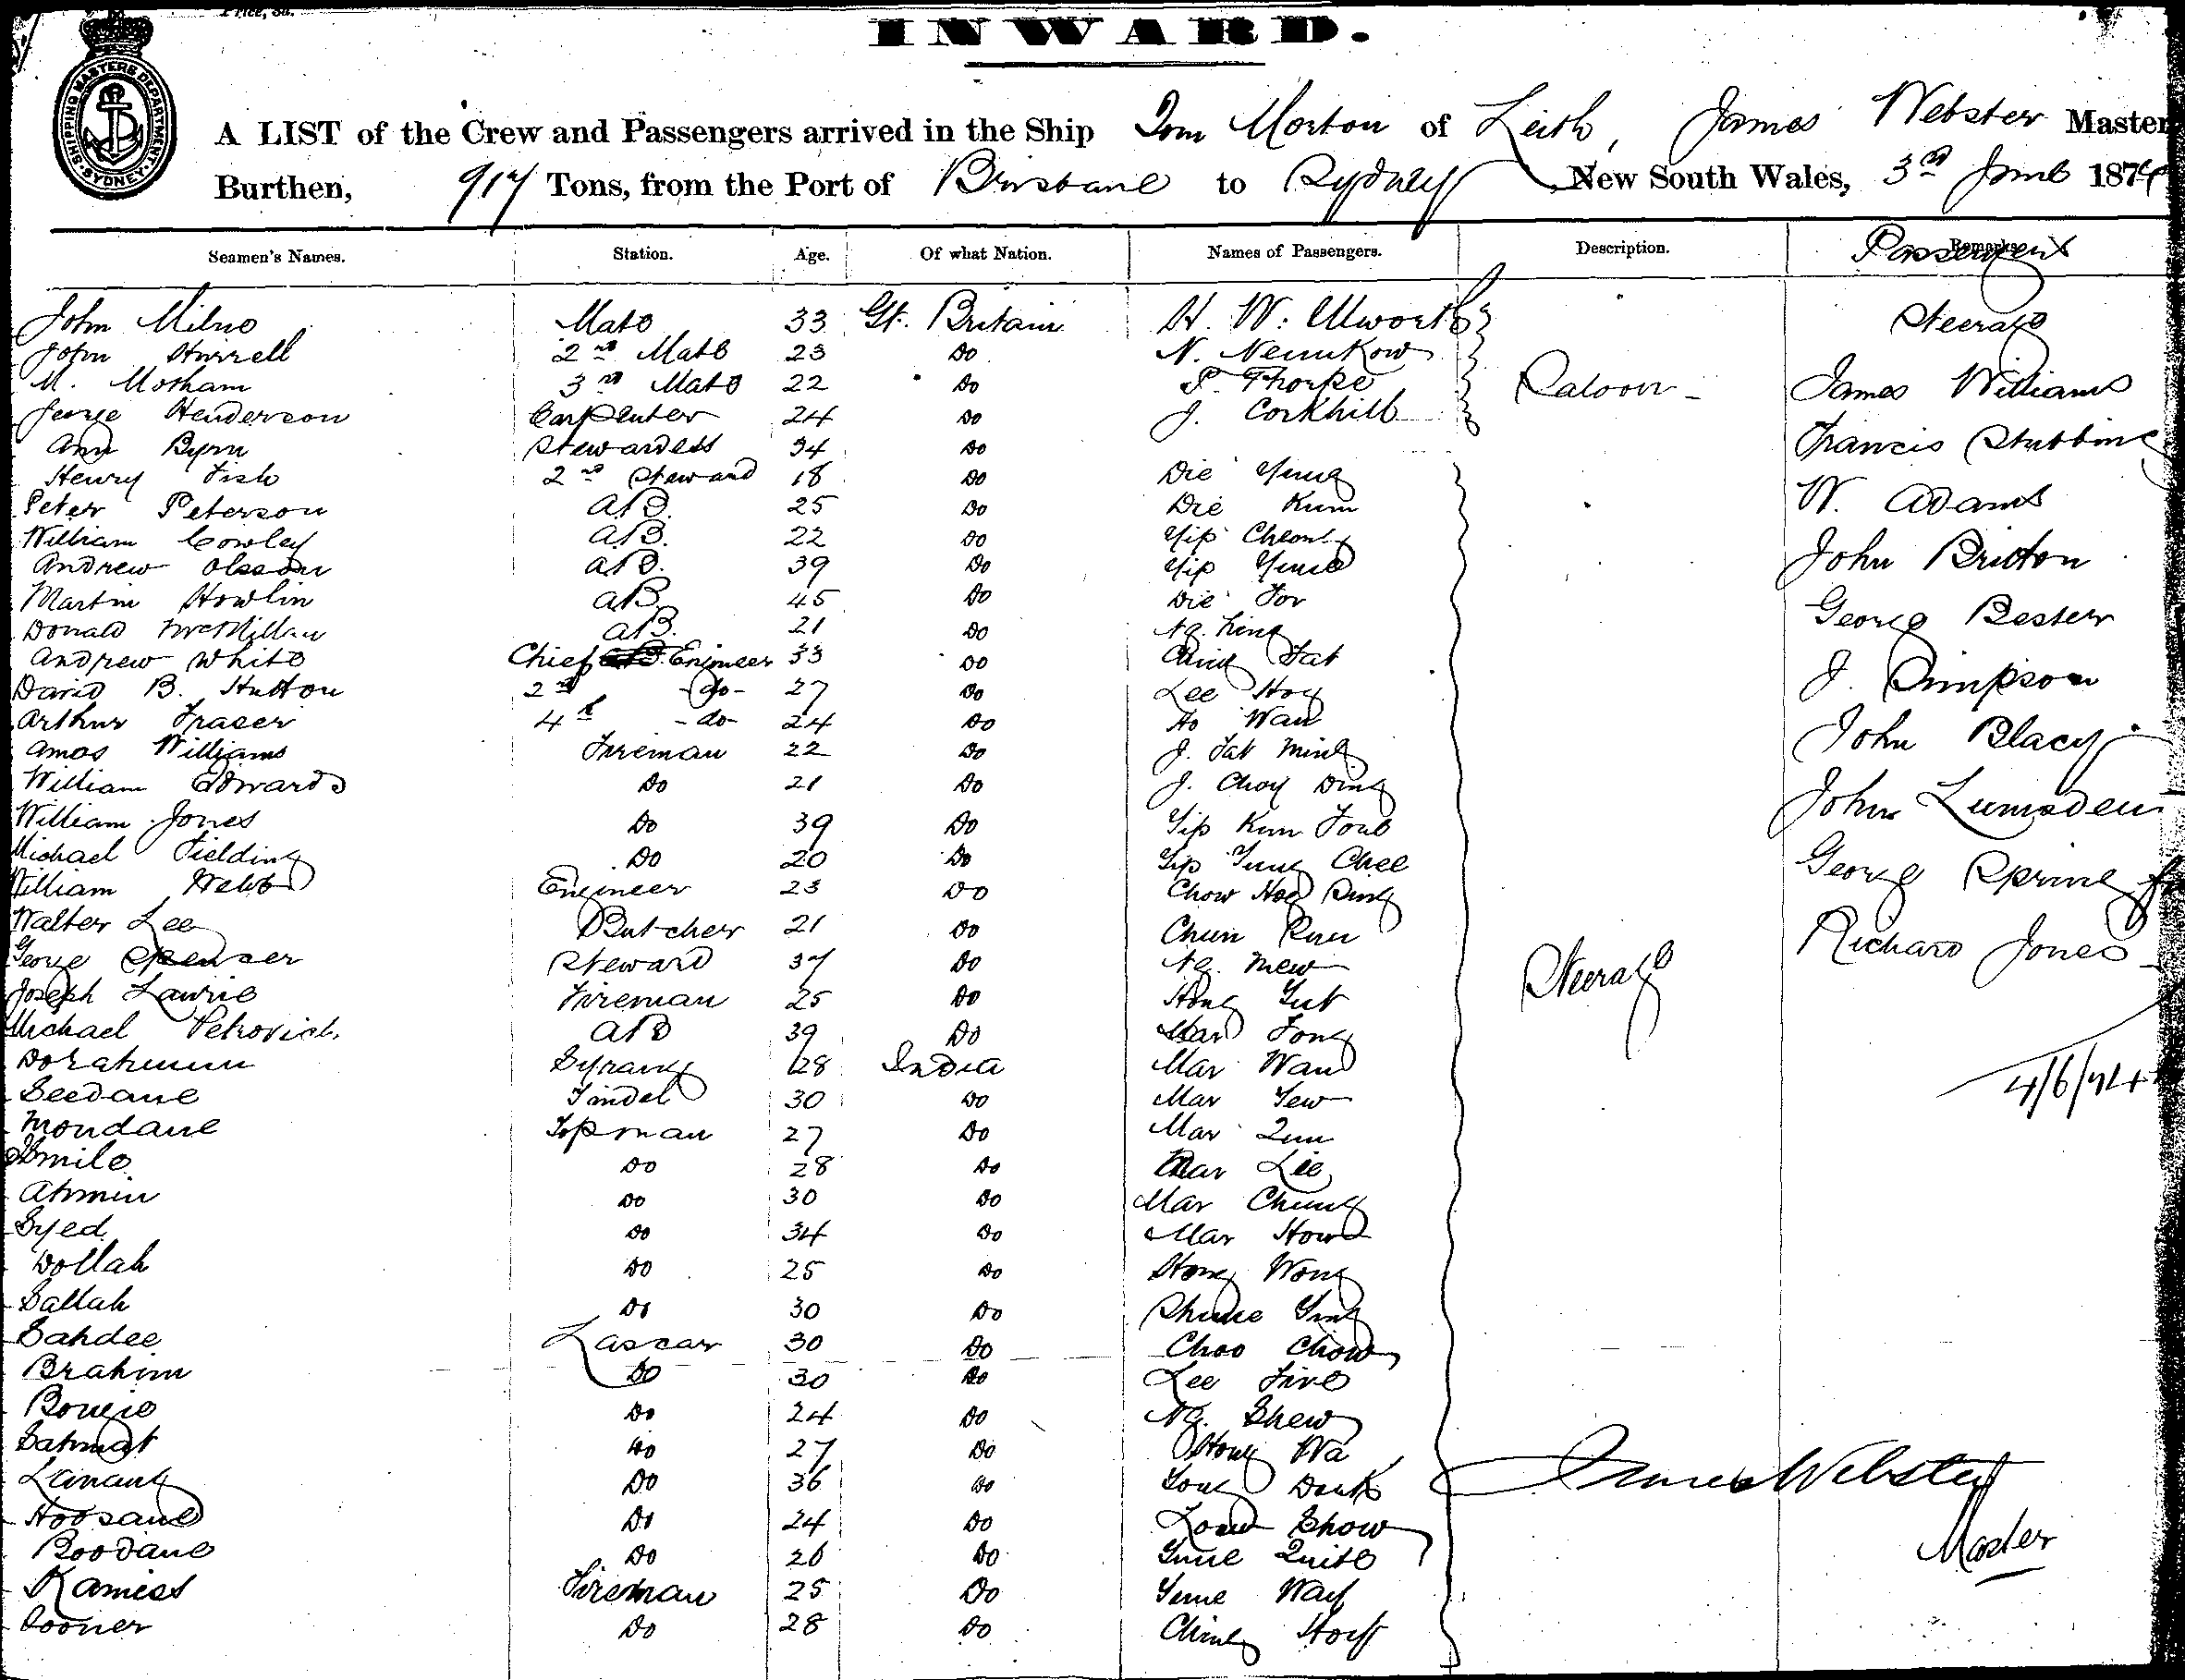 INWARD.
SHIPPING MASTERS DEPARTMENT SYDNEY
A LIST of the Crew and Passengers arrived in the Ship Tom Morton of Leith, James Webster Master
Burthen, 917 Tons, from the Port of Brisbane to Sydney New South Wales, 3rd June 1874
Seamen's Names. Station. Age. Of what Nation. Names of Passengers. Description. Remarks Passengers
John Milne Mate 33 Gt. Britain H. W. Ulworth Steerage
John Hurrell 2nd Mate 23 Do N.
M. Motham 3rd Mate 22 Do P. Thorpe Saloon - James Williams
George Henderson Carpenter 24 Do J. Corkhill
Ann Byrn Stewardess 34 Do Francis Stubbing
Henry Fish 2nd Steward 18 Do Die Yung
Peter Peterson AB. 25 Do Die Kum W. Adams
William Cowley AB. 22 Do Yip Cheong
Andrew Olsson AB. 39 Do Yip John Britton
Martin Howlin AB. 45 Do Die For
Donald McMillan AB. 21 Do Ng. Ling George Bester
Andrew White Chief Engineer 33 Do Fat
David B. Hutton 2nd -do- 27 Do Lee Hoy J. Simpson
Arthur Fraser 4th -do- 24 Do Ao Wan
Amos Williams Fireman 22 Do J. Tak Ming John Blacy
William Edwards Do 21 Do J. Choy Ding
William Jones Do 39 Do Yip Kum John Lumsden
Michael Fielding Do 20 Do Yip Yung Chee
William Webb Engineer 23 Do Chow Hog George Spring
Walter Lee Butcher 21 Do Chun
George Spenser Steward 37 Do Ng. Mew Richard Jones
Joseph Lawrie Fireman 25 Do Hong Yut Steerage
Michael Petrovich. AB 39 Do Mar Fong
Dorahmun Syrang 28 India Mar Wan 4/6/74
Seedane Tindel 30 Do Mar Yew
Mondane Topman 27 Do Mar Qun
Smile Do 28 Do Mar Lie
Ahmin Do 30 Do Mar Chung
Syed Do 34 Do Mar How
Dollah Do 25 Do Hong Wong
Sallah Do 30 Do Ying
Sahdee Lascar 30 Do Choo Chow
Brahim Do 30 Do Lee
Do 24 Do Ng. Shew
Sahmat Do 27 Do Hong Wa
Lanang Do 36 Do Dock James Webster
Hoosane Do 24 Do Show
Boodane Do 26 Do Master
Kamiss Fireman 25 Do Way
Sooner Do 28 Do Ching